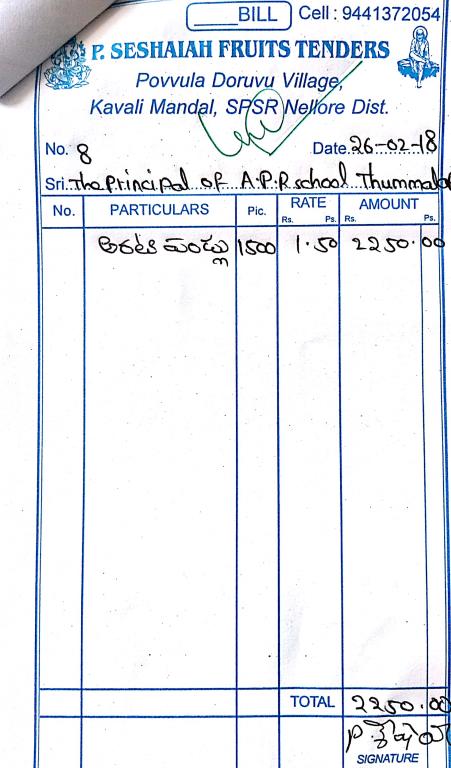 BILL Cell : 9441372054
P. SESHAIAH FRUITS TENDERS
Povvula Doruvu Village,
Kavali Mandal, SPSR Nellore Dist.
No. 8 Date. 26-02-18
Sri. The Principal of A.P.R school Thummala
No. PARTICULARS Pic. RATE Rs. Ps. AMOUNT Rs. Ps.
అరటి పండ్లు 1500 1.50 2250.00
TOTAL 2250.00
SIGNATURE